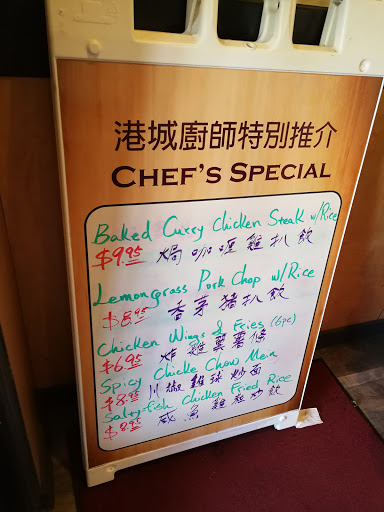 港城廚師特別推介
CHEF'S SPECIAL
Baked Curry Chicken Steak w/Rice
$9.95 焗咖喱雞扒飯
Lemongrass Pork Chop w/Rice
$8.95 香茅豬扒飯
Chicken Wings & Fries (6pc)
$6.95 炸雞翼薯條
Spicy Chicke Chow Mein
$8.95 川椒雞球炒面
Salty-fish Chicken Fried Rice
$8.95 咸魚雞粒炒飯